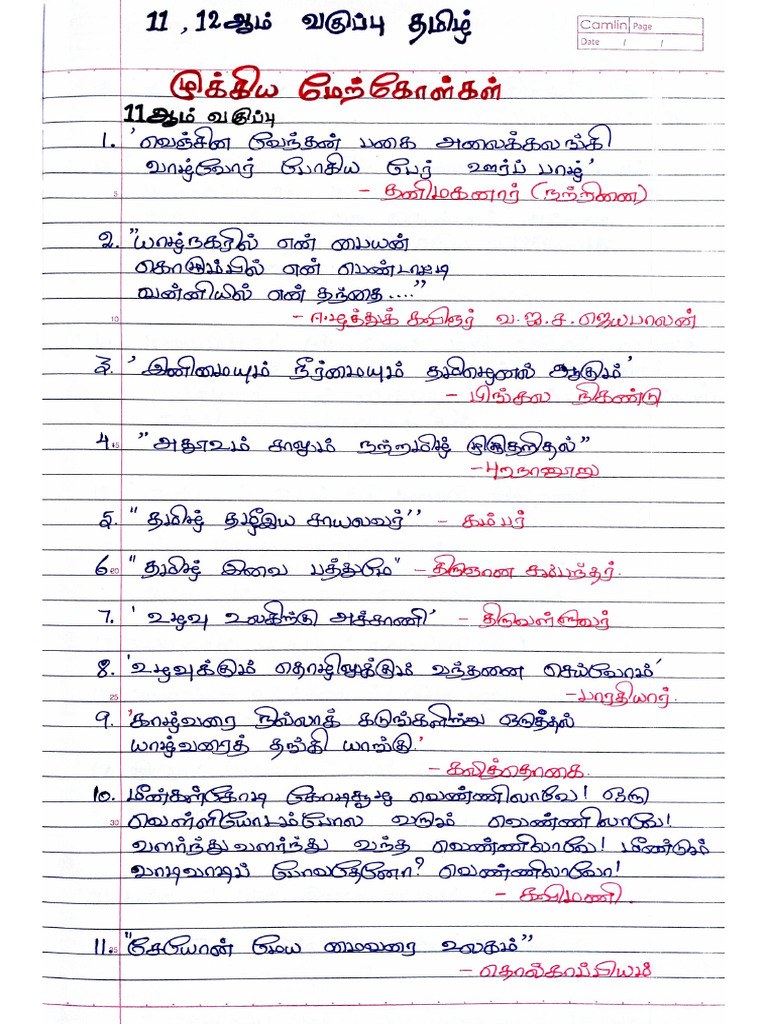 11 , 12ஆம் வகுப்பு தமிழ்
Camlin Page
Date / /
முக்கிய மேற்கோள்கள்
11ஆம் வகுப்பு
1. 'வெஞ்சின வேந்தன் பகை அலைக்கலங்கி
வாழ்வோர் போகிய பேர் ஊர்ப் பாழ்'
- தனிமகனார் (நற்றிணை)
5
2. "யாழ்நகரில் என் பையன்
கொழும்பில் என் பெண்டாட்டி
வன்னியில் என் தந்தை ...."
- ஈழத்துக் கவிஞர் வ.ஐ.ச.ஜெயபாலன்
10
3. 'இனிமையும் நீர்மையும் தமிழெனல் ஆகும்'
- பிங்கல நிகண்டு
4. "அதூஉம் சாலும் நற்றமிழ் முழுதறிதல்"
15
- புறநானூறு
5. "தமிழ் தழீஇய சாயலவர்" - கம்பர்
6. "தமிழ் இவை பத்துமே" - திருஞான சம்பந்தர்.
20
7. 'உழவு உலகிற்கு அச்சாணி' - திருவள்ளுவர்
8. 'உழவுக்கும் தொழிலுக்கும் வந்தனை செய்வோம்'
- பாரதியார்.
25
9. 'காழ்வரை நில்லாக் கடுங்களிற்று ஒருத்தல்
யாழ்வரைத் தங்கி யாங்கு.'
- கலித்தொகை.
10. மீன்கள்கோடி கோடிசூழ வெண்ணிலாவே! ஒரு
வெள்ளியோடம்போல வரும் வெண்ணிலாவே!
30
வளர்ந்துவளர்ந்து வந்த வெண்ணிலாவே! மீண்டும்
வாடிவாடிப் போவதேனோ? வெண்ணிலாவோ!
- கவிமணி.
11. "சேயோன் மேய மைவரை உலகம்"
35
- தொல்காப்பியம்